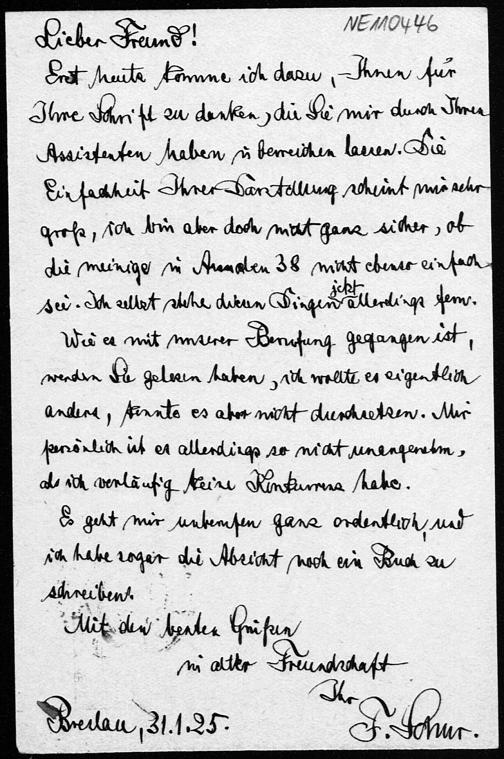 NE110446
Lieber Freund!
Erst heute komme ich dazu, Ihnen für
Ihre Schrift zu danken, die Sie mir durch Ihren
Assistenten haben überreichen lassen. Die
Einfachheit Ihrer Darstellung scheint mir sehr
groß, ich bin aber doch nicht ganz sicher, ob
die meinige in Annalen 38 nicht ebenso einfach
sei. Ich selbst stehe diesen Dingen jetzt allerdings fern.
Wie es mit unserer Berufung gegangen ist,
werden Sie gelesen haben, ich wollte es eigentlich
anders, konnte es aber nicht durchsetzen. Mir
persönlich ist es allerdings so nicht unangenehm,
da ich vorläufig keine Konkurrenz habe.
Es geht mir unberufen ganz ordentlich, und
ich habe sogar die Absicht noch ein Buch zu
schreiben.
Mit den besten Grüßen
in alter Freundschaft
Ihr
Breslau, 31.1.25. F. Schur.